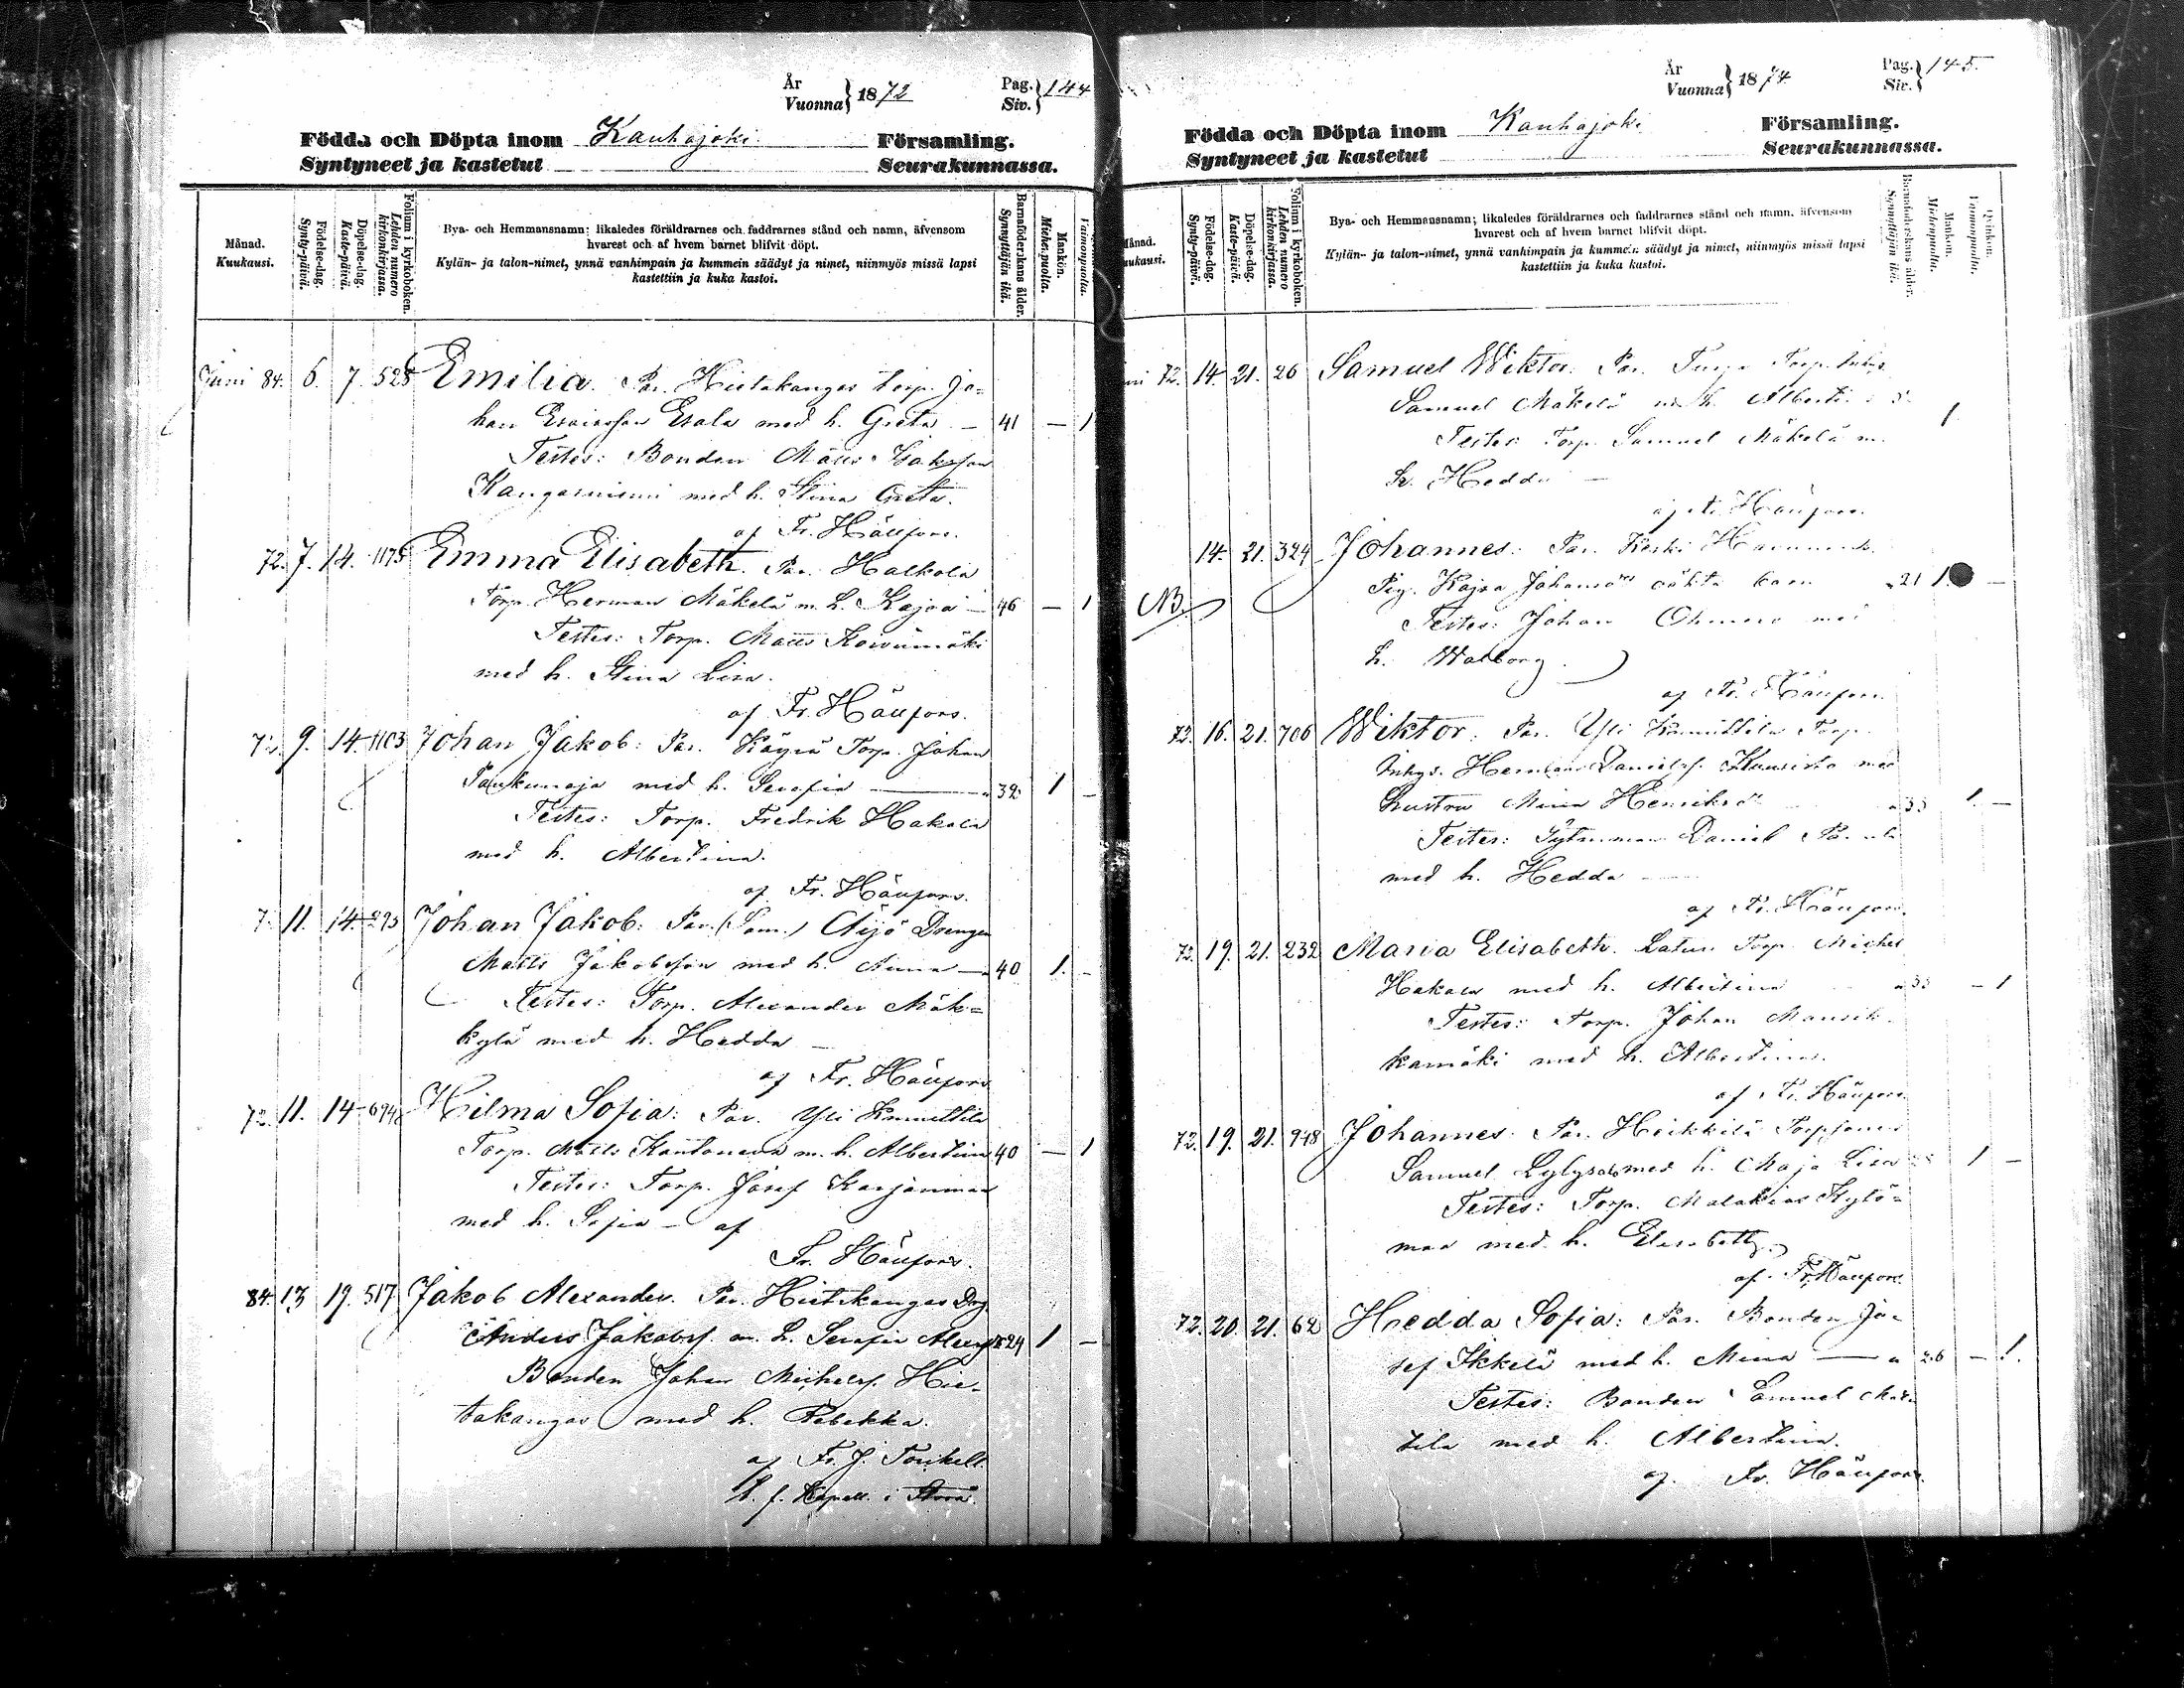 År
Vuonna } 1872
Pag.
Siv. } 144
Födda och Döpta inom Kauhajoki Församling.
Syntyneet ja kastetut Seurakunnassa.
Månad.
Kuukausi.
Födelse-dag.
Synty-päivä.
Döpelse-dag.
Kaste-päivä.
Folium i kyrkoboken.
Lehden numero kirkonkirjassa.
Bya- och Hemmansnamn; likaledes föräldrarnes och faddrarnes stånd och namn, äfvensom
hvarest och af hvem barnet blifvit döpt.
Kylän- ja talon-nimet, ynnä vanhimpain ja kummein säädyt ja nimet, niinmyös missä lapsi
kastettiin ja kuka kastoi.
Barnaföderskans ålder.
Synnyttäjän ikä.
Mankön.
Miehenpuolia.
Vaimonpuolia.
Juni 84. 6. 7. 528 Emilia. Par. Hietakangas Torp. Jo=
han Esaiasson Esala med h. Greta — 41 — 1
Testes: Bonden Matts Isaksson
Kangasniemi med h. Stina Greta.
af Fr. Häufors.
72. 7. 14. 1175 Emma Elisabeth. Par. Halkola
Torp. Herman Mäkelä m. h. Kajsa — 46 — 1
Testes: Torp. Matts Koivumäki
med h. Stina Lisa.
af Fr. Häufors.
72. 9. 14. 1103 Johan Jakob: Par. Köyrä Torp. Johan
med h. Serafia — 32 1 —
Testes: Torp. Fredrik Hakala
med h. Albertina.
af Fr. Häufors.
7 11. 14. 295 Johan Jakob: Par. (Sam.) Äijö Drengen
Matts Jakobsson med h. Anna — 40 1. —
Testes: Torp. Alexander Mäk=
kylä med h. Hedda —
af Fr. Häufors
72. 11. 14 694 Hilma Sofia: Par. Yli Knuuttila
Torp. Matts Kantonen m. h. Albertina 40 — 1
Testes: Torp. Josef Karjanmaa
med h. Sofia — af
Fr. Häufors.
84. 13. 19. 517 Jakob Alexander. Par. Hietakangas Drg
Anders Jakobss. m. h. Serafia 24 1 —
Bonden Johan Michelss. Hie-
takangas med h. Rebekka.
af Fr. J. Torckell.
V. f. Kapell. i Storå.
År
Vuonna } 1874
Pag.
Siv. } 145.
Födda och Döpta inom Kauhajoki Församling.
Syntyneet ja kastetut Seurakunnassa.
Månad.
Kuukausi.
Födelse-dag.
Synty-päivä.
Döpelse-dag.
Kaste-päivä.
Folium i kyrkoboken.
Lehden numero kirkonkirjassa.
Bya- och Hemmansnamn; likaledes föräldrarnes och faddrarnes stånd och namn, äfvensom
hvarest och af hvem barnet blifvit döpt.
Kylän- ja talon-nimet, ynnä vanhimpain ja kummein säädyt ja nimet, niinmyös missä lapsi
kastettiin ja kuka kastoi.
Barnaföderskans ålder.
Synnyttäjän ikä.
Mankön.
Miehenpuolia.
Qvinkön.
Vaimonpuolia.
72. 14. 21. 26 Samuel Wiktor. Par. Torp.
Samuel Mäkelä m. h. 1
Testes: Torp. Samuel Mäkelä m.
h. Hedda —
af Fr. Häufors.
14. 21. 324 Johannes: Par. Keski
NB. Pig. Kajsa Johansdr oäkta barn 21 1. —
Testes: Johan med
h. Walborg.
af Fr. Häufors.
72. 16. 21. 706 Wiktor: Par. Yli Knuuttila Torp.
Inhys. Herman Danielss. Kuusisto med
hustru Maria Henriksdr 33 1. —
Testes: Daniel
med h. Hedda
af Fr. Häufors.
72. 19. 21. 232 Maria Elisabeth. Torp. Michel
Hakala med h. Albertina — 1
Testes: Torp. Johan Mansik-
kamäki med h. Albertina.
af Fr. Häufors.
72. 19. 21. 948 Johannes: Par. Heikkilä
Samuel med h. Maja Lisa 1 —
Testes: Torp. Malakias Kytö=
maa med h. Elisabeth.
af Fr. Häufors.
72. 20. 21. 62 Hedda Sofia: Par. Bonden Jo-
sef Ikkelä med h. Mina — 26 — 1.
Testes: Bonden Samuel
tila med h. Albertina.
af Fr. Häufors.